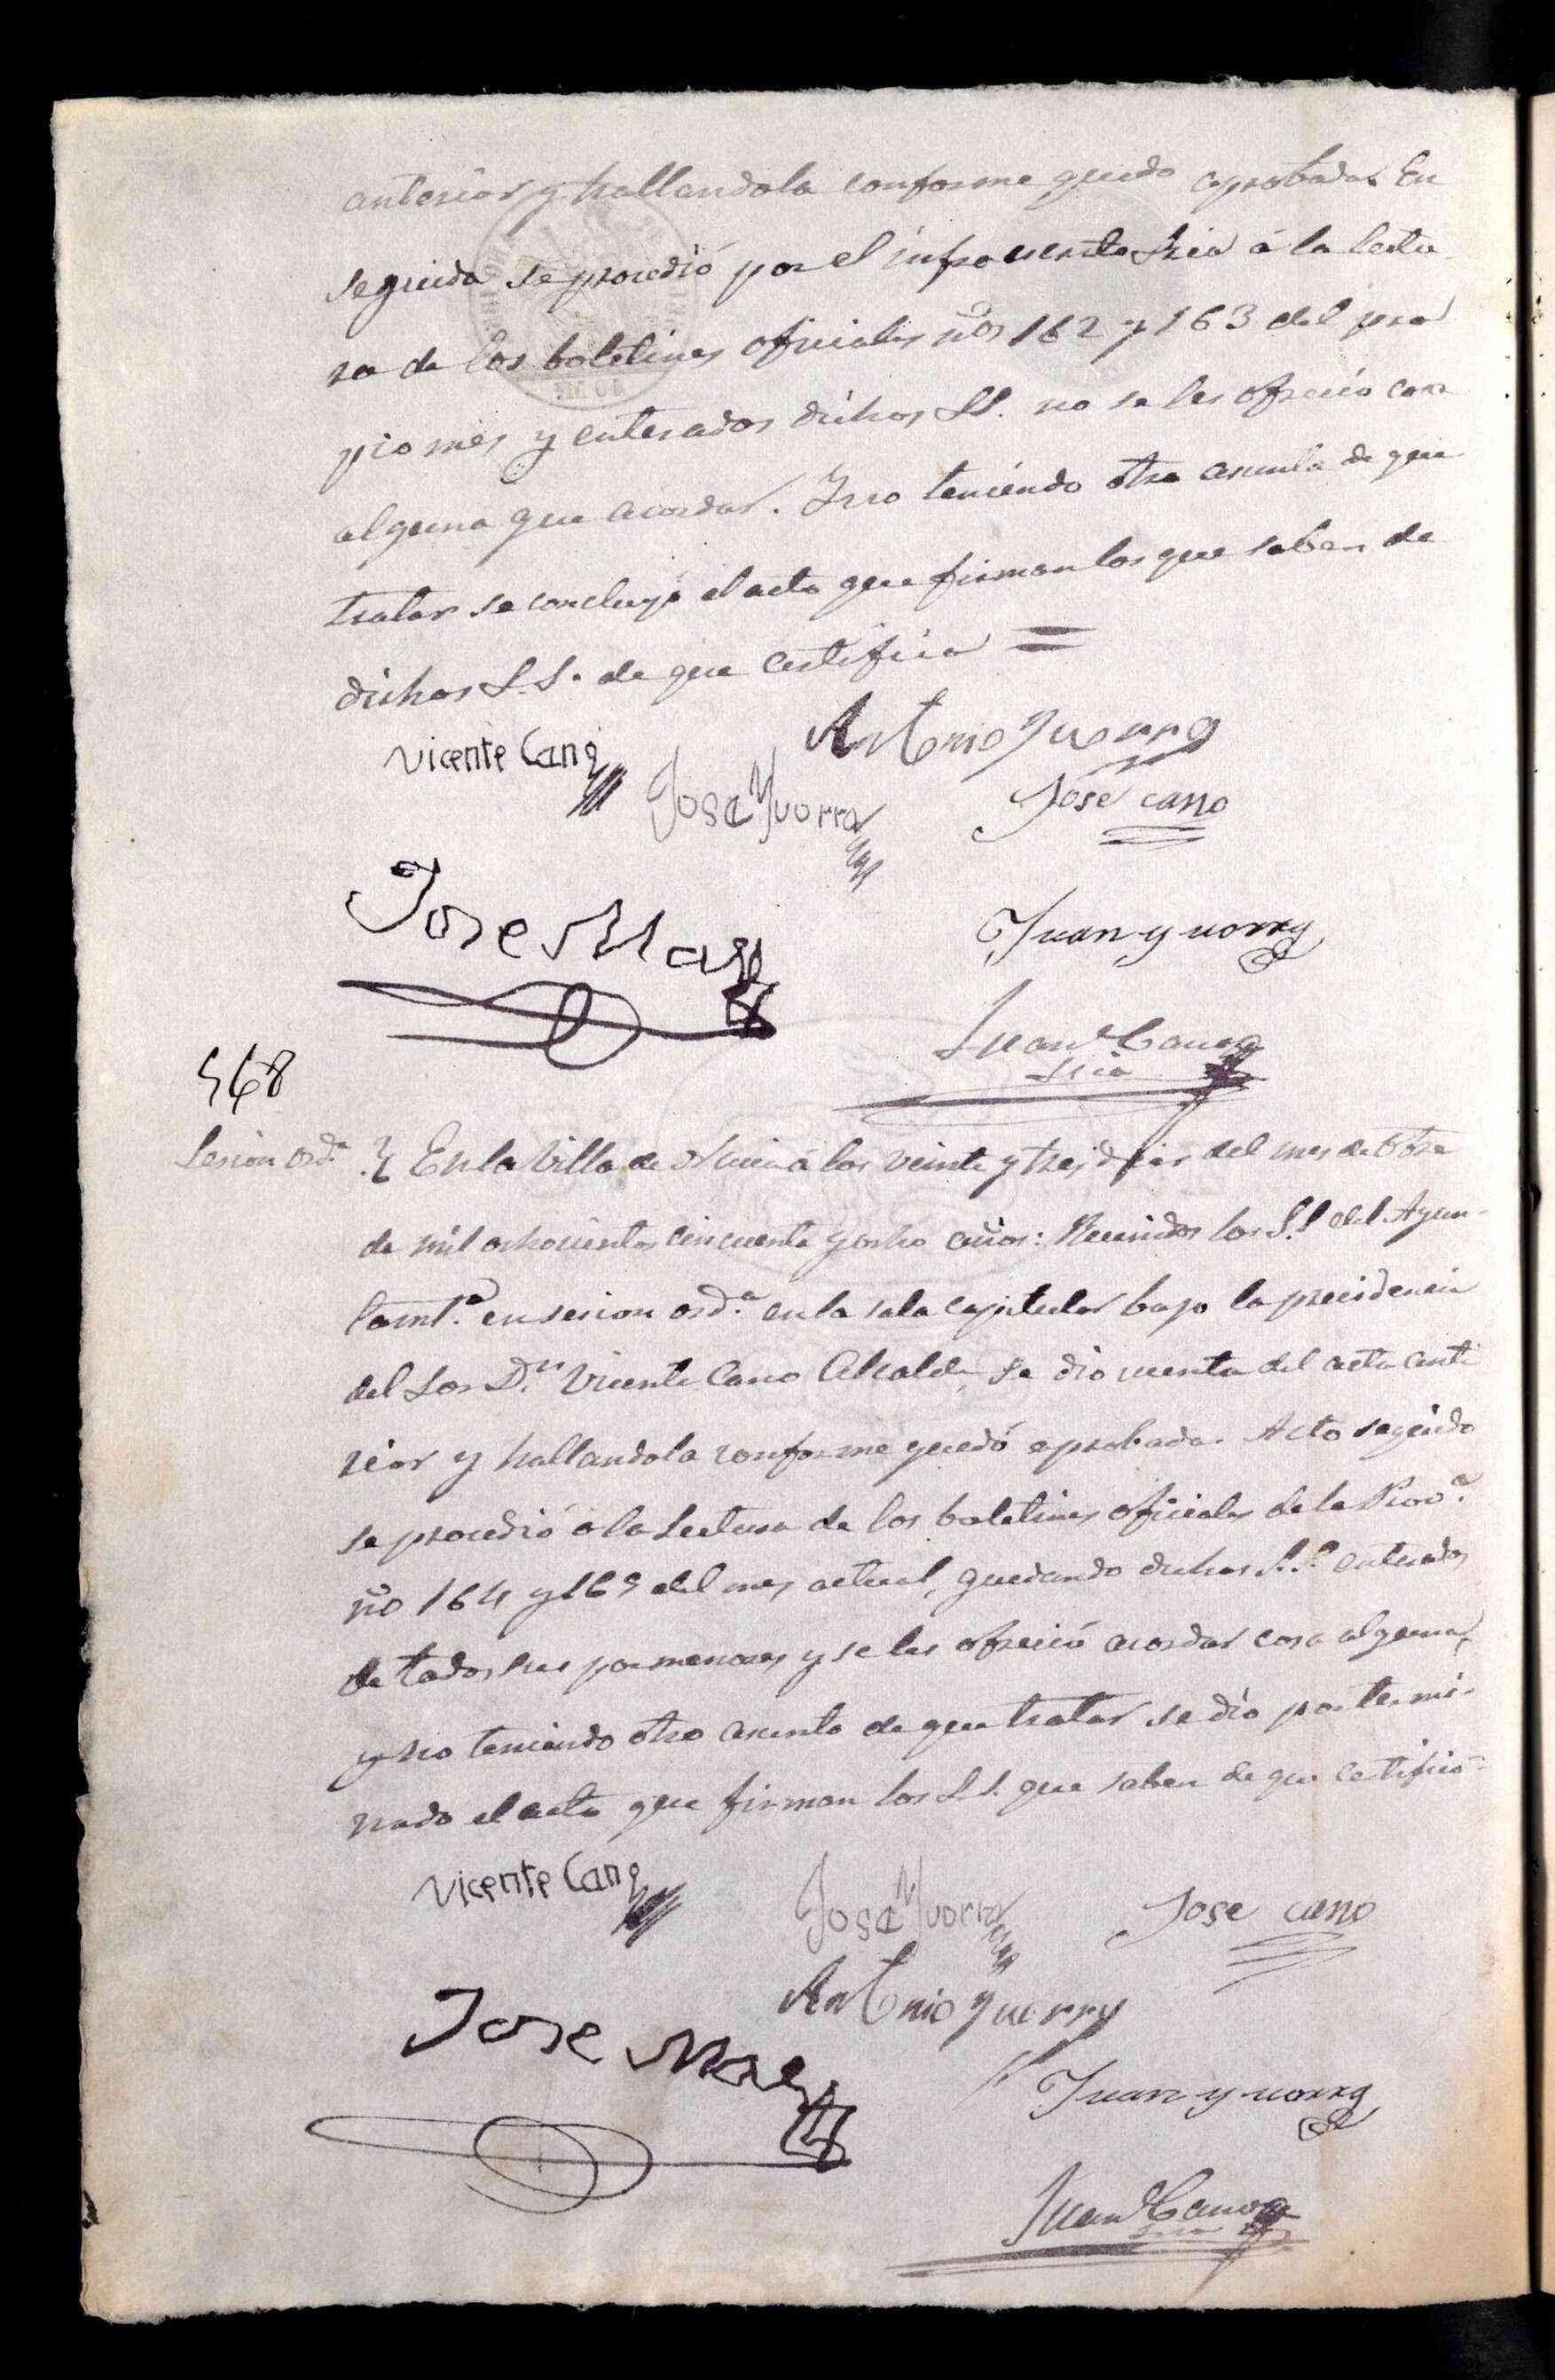 anterior y hallandola conforme quedo aprobada. En
seguida se procedió por el infraescrito Srio á la lectu
ra de los boletines oficiales nos 162 y 163 del pro
pio mes y enterados dichos S.S. no se les ofreció cosa
alguna que acordar. Y no teniendo otro asunto de que
tratar se concluyó el acto que firman los que saben de
dichos S.S. de que certifico =
Vicente Cano
Antonio Yvorra
José Yvorra
José cano
Jose Mas
Juan yvorra
Juan Cano
Srio
568
Sesion ordª
En la Villa de Nucia á los veinte y tres dias del mes de Obre
de mil ochocientos cincuenta y ocho años: Reunidos los S.S. del Ayun-
tamtº en sesion ordª en la sala capitular bajo la presidencia
del Sor Dn Vicente Cano Alcalde, se dio cuenta del acta ante
rior y hallandola conforme quedó aprobada. Acto seguido
se procedió a la Lectura de los boletines oficiales de la Provª
no 164 y 165 del mes actual, quedando dichos S.S. enterados
de todos sus pormenores y se les ofreció acordar cosa alguna,
y no teniendo otro asunto de que tratar se dio por termi-
nado el acto que firman los S.S. que saben de que certifico =
Vicente Cano
José Yvorra
Jose cano
Antonio Yvorra
Jose Mas
Juan yvorra
Juan Cano
Srio